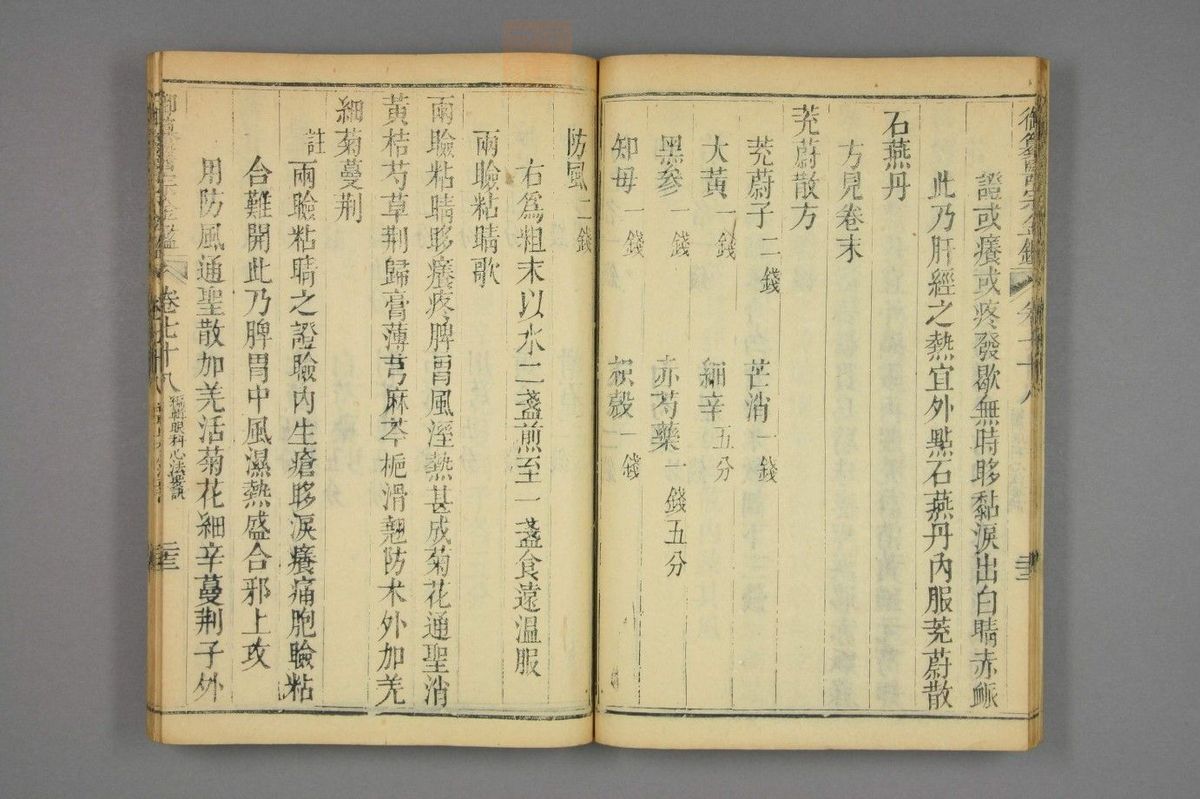 御纂醫宗金鑑
卷七十八
證或癢或疼發歇無時眵黏淚出白睛赤脈
此乃肝經之熱宜外點石燕丹內服茺蔚散
石燕丹
方見卷末
茺蔚散方
茺蔚子二錢 芒消一錢
大黃一錢 細辛五分
黑參一錢 赤芍藥一錢五分
知母一錢 枳殼一錢
防風二錢
右爲粗末以水二盞煎至一盞食遠温服
兩瞼粘睛歌
兩瞼粘睛眵癢疼脾胃風溼熱甚成菊花通聖消
黃桔芍草荆歸膏薄芎麻芩梔滑翹防术外加羌
細菊蔓荆
註兩瞼粘睛之證瞼內生瘡眵淚癢痛胞瞼粘
合難開此乃脾胃中風濕熱盛合邪上攻
用防風通聖散加羌活菊花細辛蔓荆子外
卷七十八 編輯眼科心法要訣